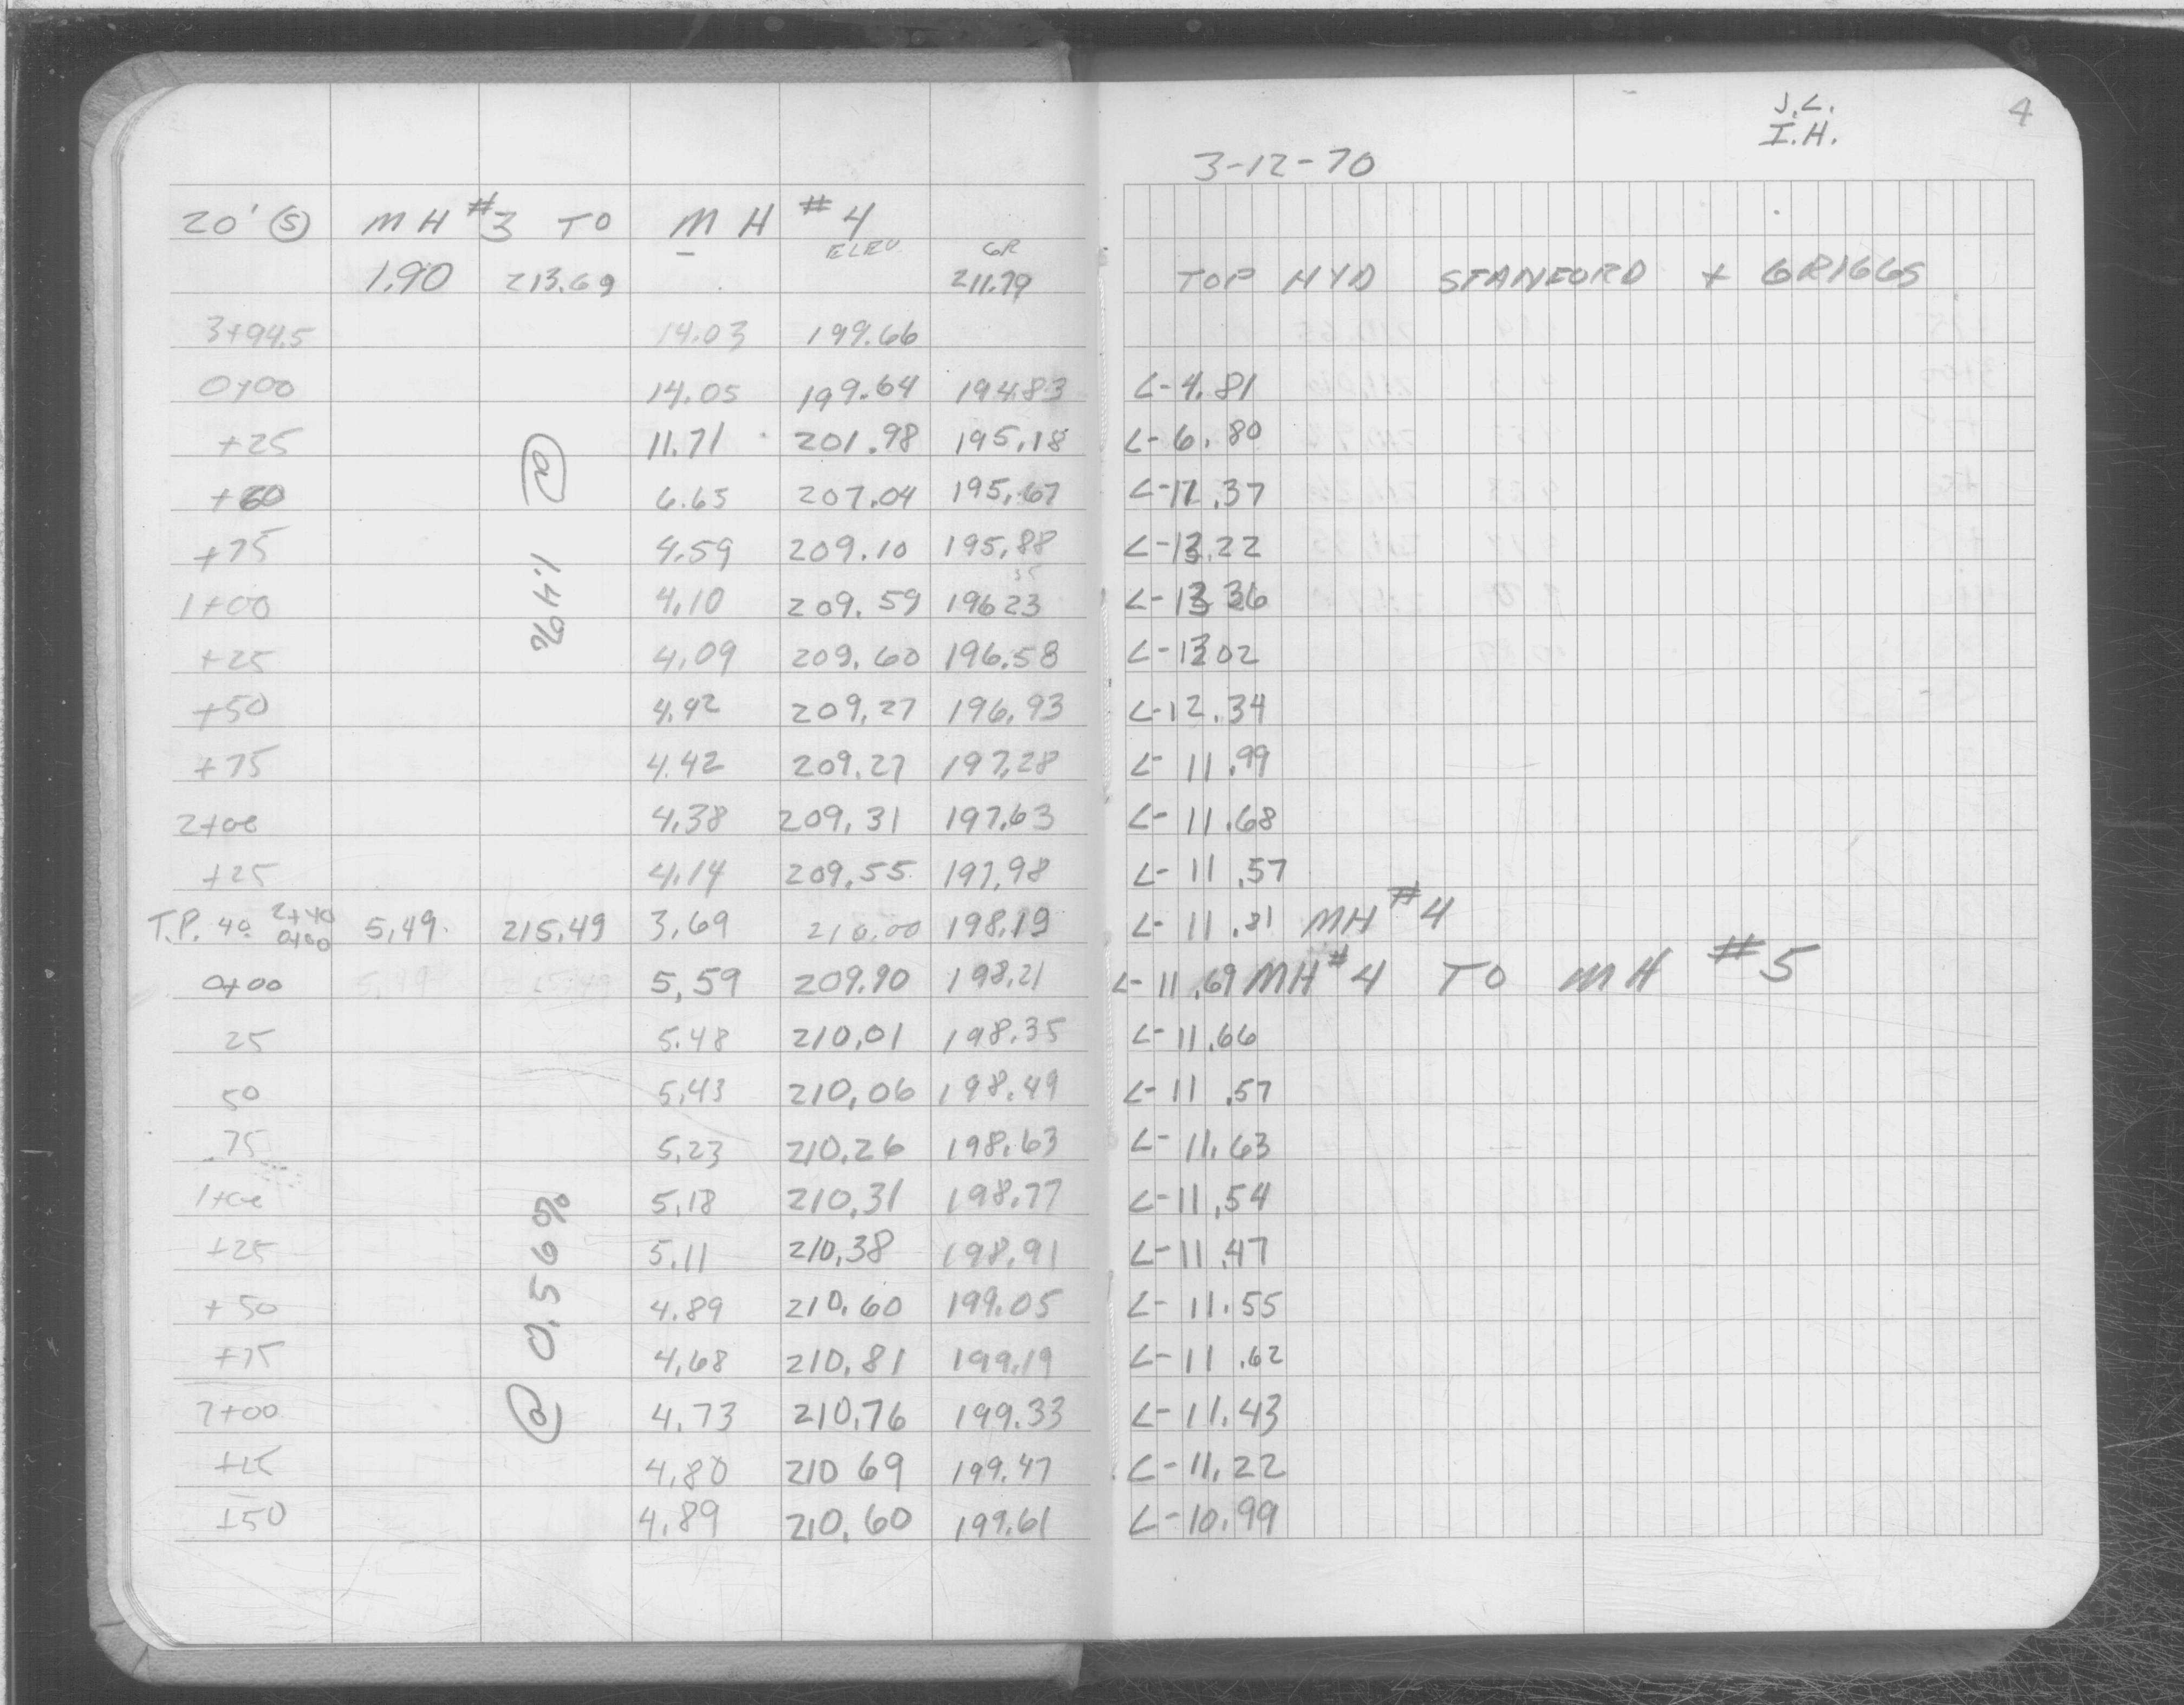 J.L.
I.H.
4
3-12-70
20' (S) MH #3 TO MH #4
- ELEV. GR
1.90 213.69 211.79 TOP HYD STANFORD + GRIGGS
3+94.5 14.03 199.66
0+00 14.05 199.64 194.83 C-4.81
+25 11.71 201.98 195.18 C-6.80
+60 6.65 207.04 195.67 C-11.37
+75 4.59 209.10 195.88 C-13.22
1+00 4.10 209.59 196 23 C-13 36
+25 4.09 209.60 196.58 C-13 02
+50 4.42 209.27 196.93 C-12.34
+75 4.42 209.27 197.28 C-11.99
2+00 4.38 209.31 197.63 C-11.68
+25 4.14 209.55 197.98 C-11.57
T.P. 40 2+40 0+00 5.49 215.49 3.69 210.00 198.19 C-11.81 MH #4
@ 1.4%
0+00 5.49 215.49 5.59 209.90 198.21 C-11.69 MH #4 TO MH #5
25 5.48 210.01 198.35 C-11.66
50 5.43 210.06 198.49 C-11.57
75 5.23 210.26 198.63 C-11.63
1+00 5.18 210.31 198.77 C-11.54
+25 5.11 210.38 198.91 C-11.47
+50 4.89 210.60 199.05 C-11.55
+75 4.68 210.81 199.19 C-11.62
2+00 4.73 210.76 199.33 C-11.43
+25 4.80 210 69 199.47 C-11.22
+50 4.89 210.60 199.61 C-10.99
@ 0.56%